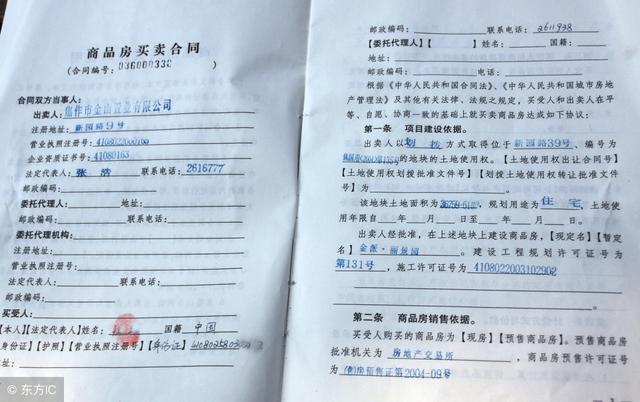 商品房买卖合同
(合同编号: 036000330 )
合同双方当事人:
出卖人: 焦作市金山置业有限公司
注册地址: 新园路9号
营业执照注册号: 4108022000165
企业资质证书号: 41080163
法定代表人: 张浩 联系电话: 2616777
邮政编码:
委托代理人: 地址:
邮政编码: 联系电话:
委托代理机构:
注册地址:
营业执照注册号:
法定代表人: 联系电话:
邮政编码:
买受人:
【本人】【法定代表人】姓名: 国籍 中国
身份证】【护照】【营业执照注册号】【 】
地址:
邮政编码: 联系电话: 2611938
【委托代理人】【 】姓名: 国籍:
地址:
邮政编码: 电话:
根据《中华人民共和国合同法》、《中华人民共和国城市房地
产管理法》及其他有关法律、法规之规定,买受人和出卖人在平
等、自愿、协商一致的基础上就买卖商品房达成如下协议:
第一条 项目建设依据。
出卖人以 划拨 方式取得位于 新园路39号 、编号为
的地块的土地使用权。【土地使用权出让合同号】
【土地使用权划拨批准文件号】【划拨土地使用权转让批准文件
号】为 。
该地块土地面积为 ,规划用途为 住宅 ,土地使
用年限自 年 月 日至 年 月 日。
出卖人经批准,在上述地块上建设商品房,【现定名】【暂定
名】 金派·丽景园 。建设工程规划许可证号为
第131号 ,施工许可证号为 4108022003102902
。
第二条 商品房销售依据。
买受人购买的商品房为【现房】【预售商品房】。预售商品房
批准机关为 房地产交易所 ,商品房预售许可证号
为 房预售证第2004-09号
© 东方IC